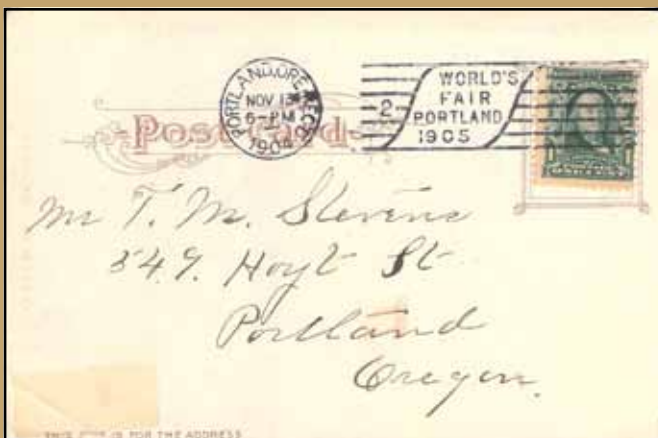 PORTLAND, ORE.
NOV 13
6-PM
1904
REC'D
2
WORLD'S
FAIR
PORTLAND
1905
Post Card
Mr T. M. Stevens
549. Hoyt St
Portland
Oregon.
THIS SIDE IS FOR THE ADDRESS